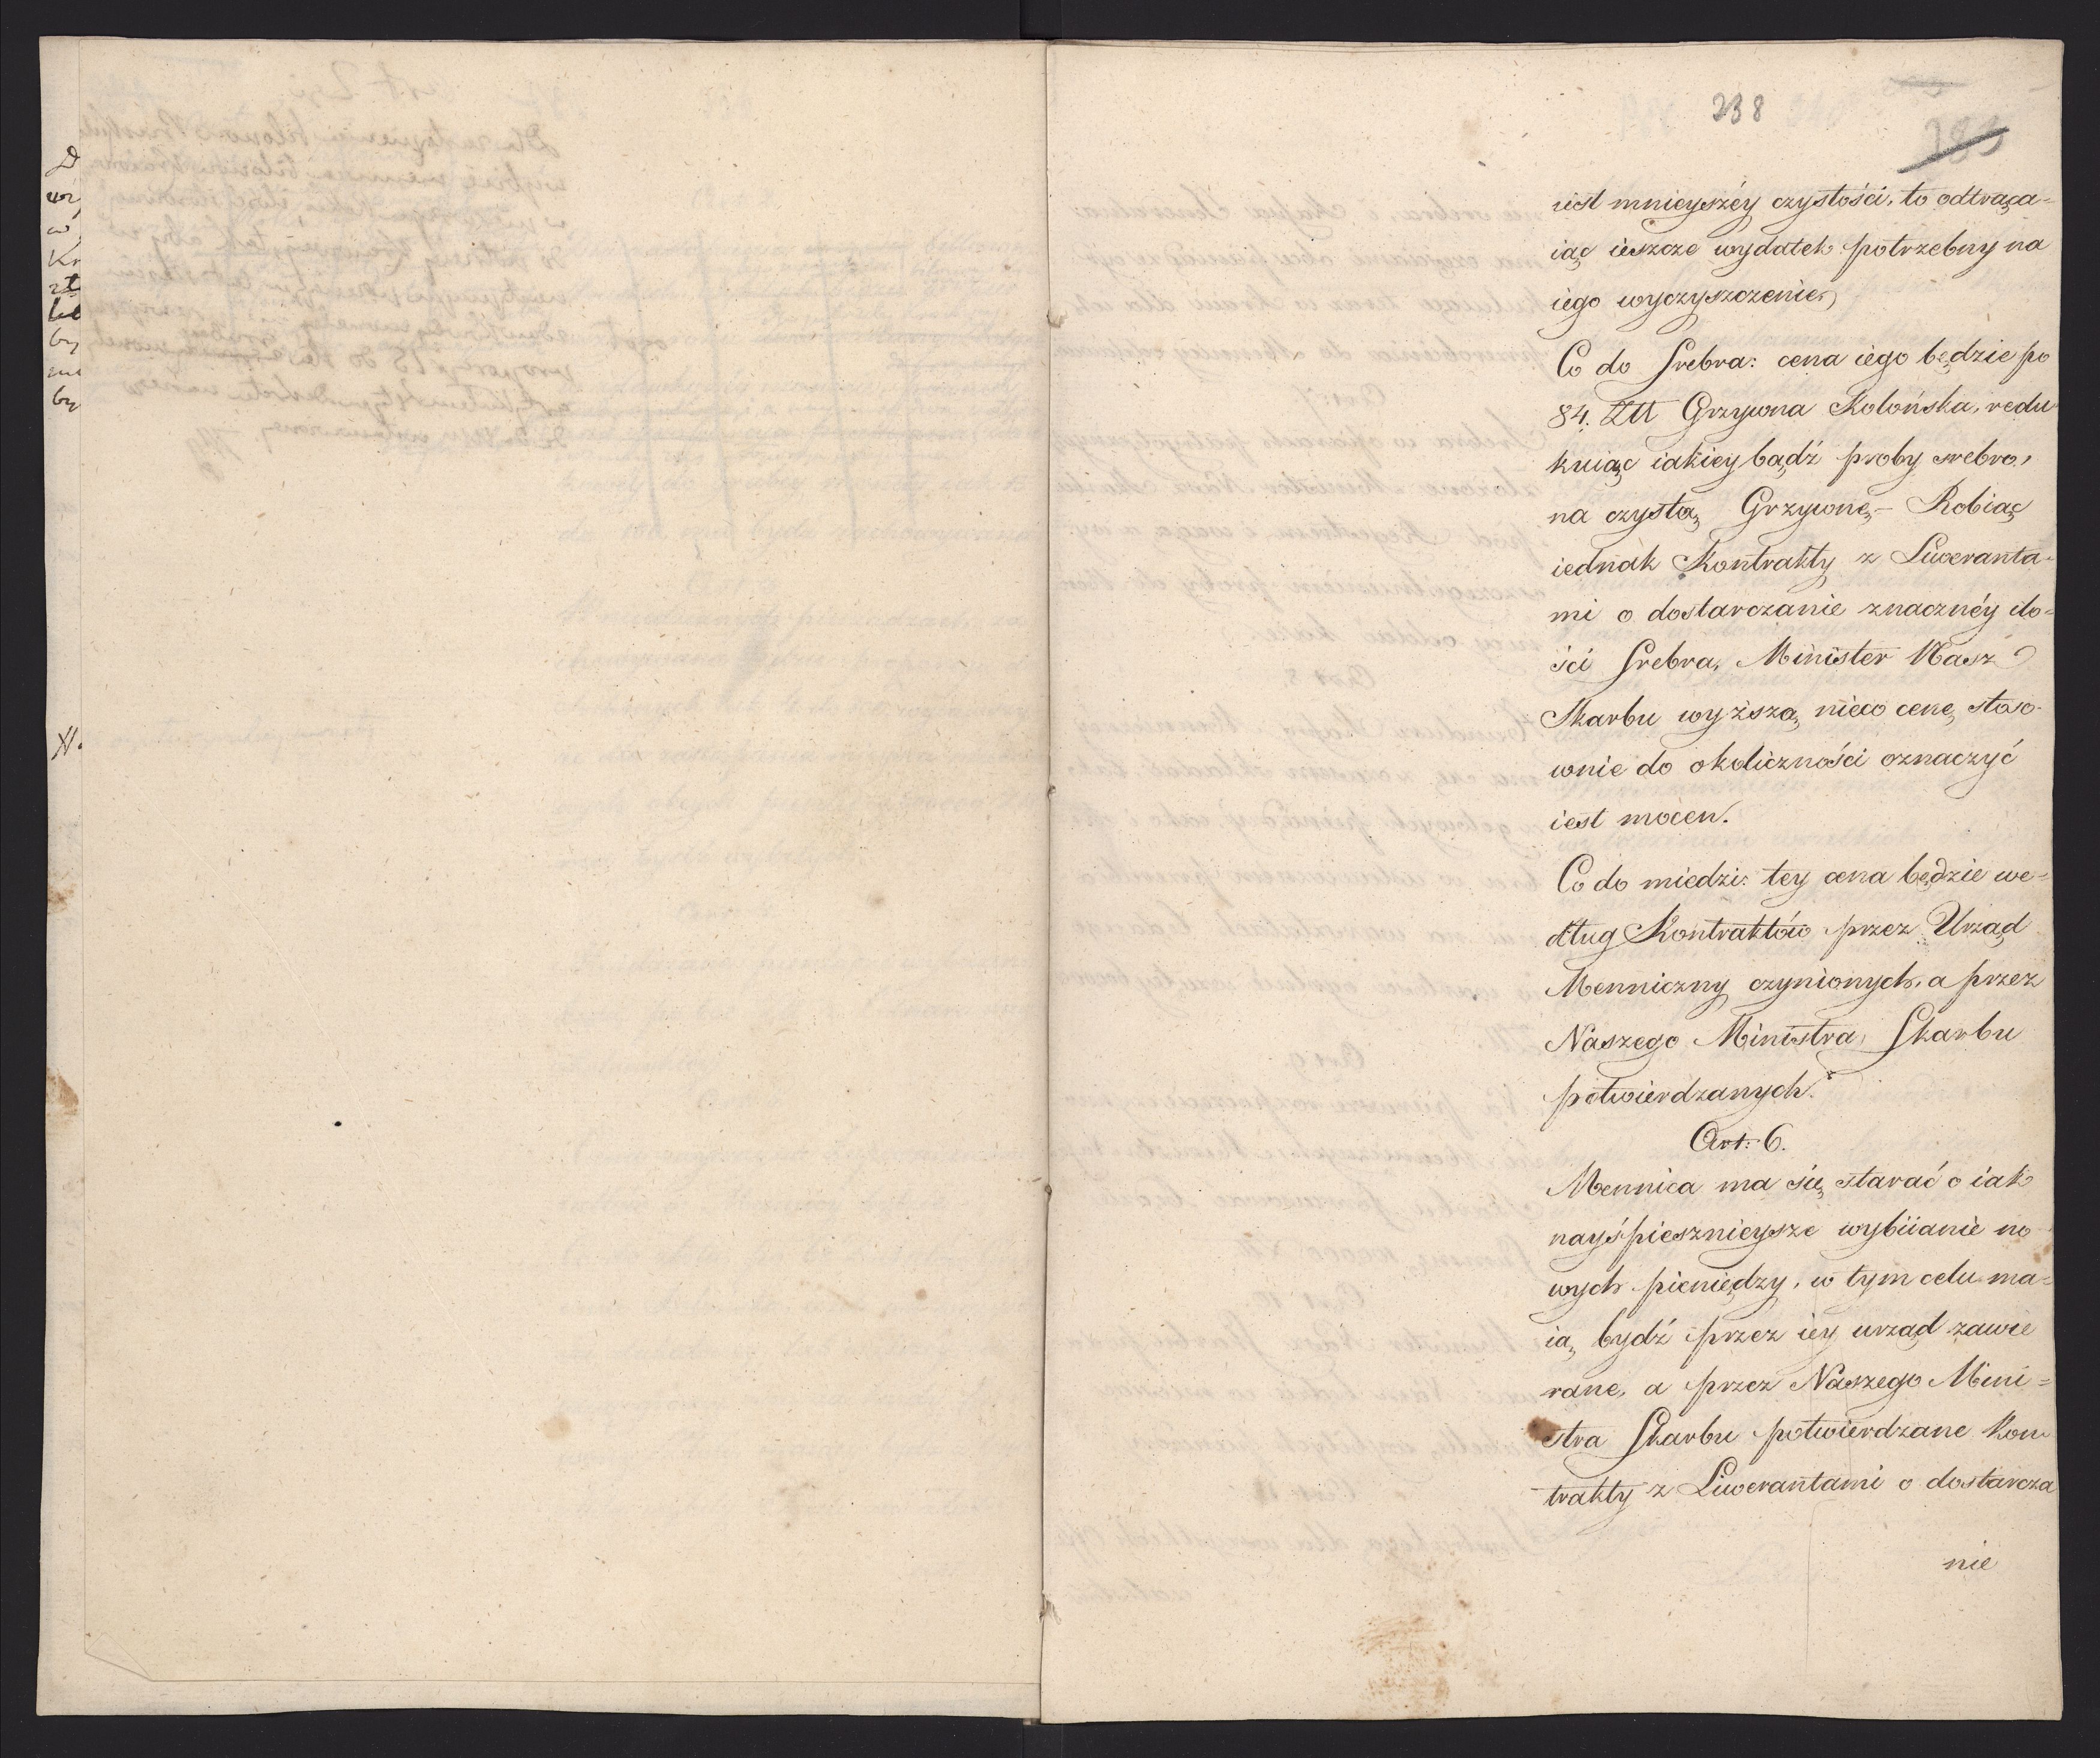 238
iest mnieyszéy czystości, to odtrąca=
iąc ieszcze wydatek potrzebny na
iego wyczyszczenie,
Co do Srebra: cena iego będzie po
84. Złł Grzywna Kolońska, redu
kuiąc iakiey bądź proby srebro,
na czystą Grzywnę,– Robiąc
iednak Kontrakty z Liweranta=
mi o dostarczanie znacznéy ilo=
ści Srebra, Minister Nasz
Skarbu wyższą nieco cenę stoso-
wnie do okoliczności oznaczyć
iest mocen.
Co do miedzi: tey cena będzie we=
dług Kontraktów przez Urząd
Menniczny czynionych, a przez
Naszego Ministra Skarbu
potwierdzanych.
Art: 6.
Mennica ma się starać o iak
nayśpiesznieysze wybiianie no
wych pieniędzy, w tym celu ma=
ią bydź przez iey urząd zawie
rane, a przez Naszego Mini=
stra Skarbu potwierdzane Kon
trakty z Liwerantami o dostarcza
nie